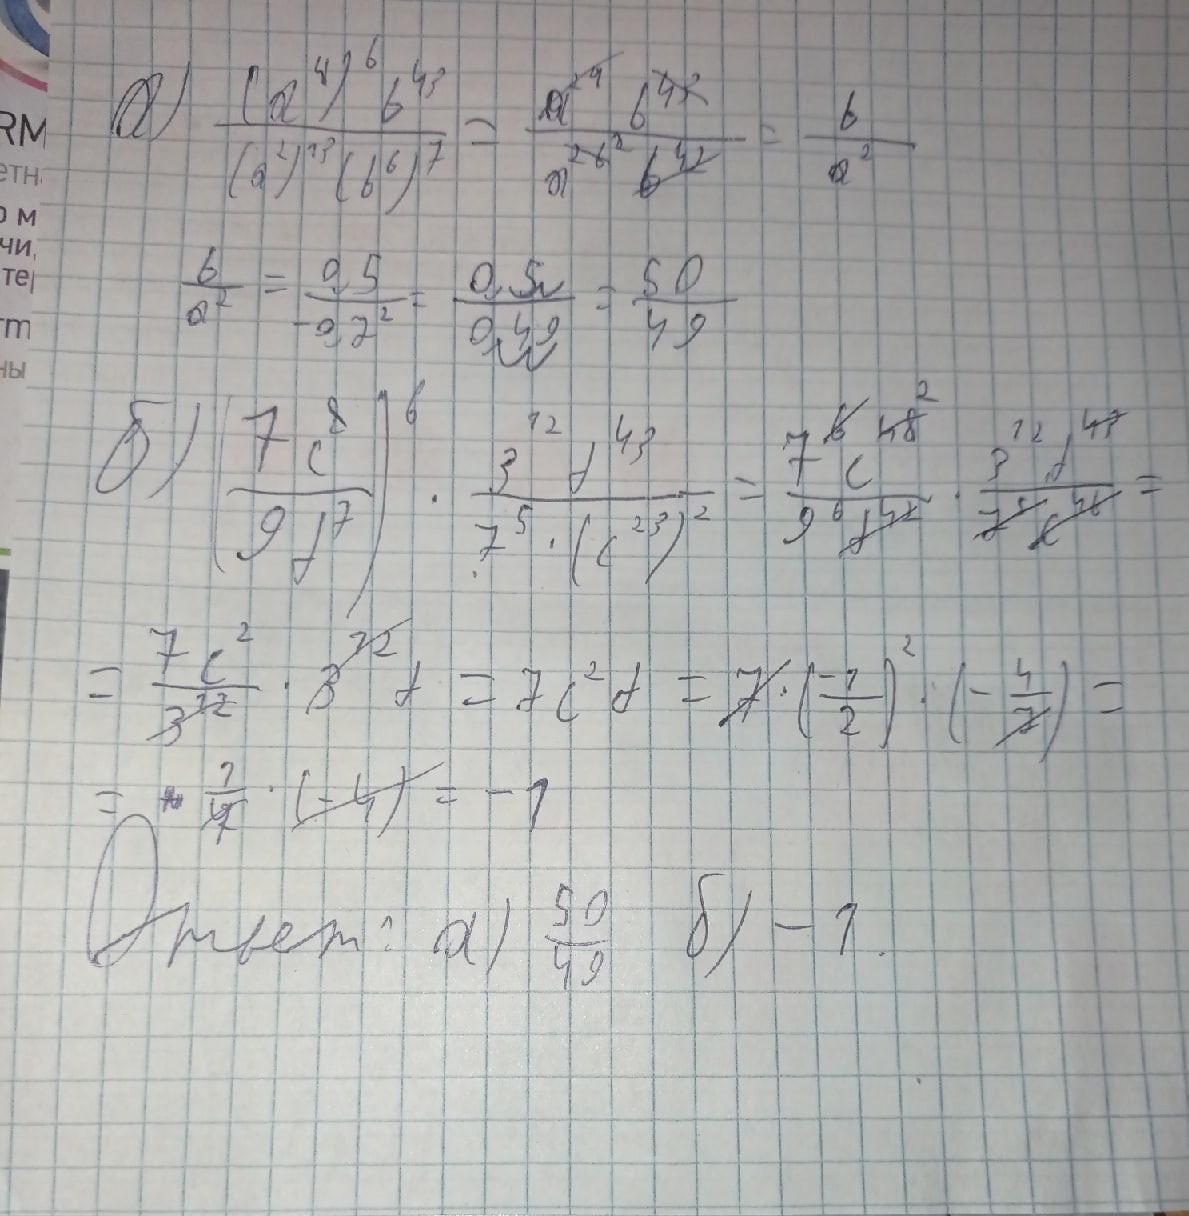 RM
етн
о м
чи,
те
rm
ны
а) (a⁴)⁶ b⁴³ / (a²)¹³ (b⁶)⁷ = a²⁴ b⁴³ / a²⁶ ² b⁴² = b / a²
b / a² = 0,5 / -0,7² = 0,5 / 0,49 = 50 / 49
б) (7c⁸ / 9d⁷)⁶ · 3¹² d⁴³ / 7⁵ · (c²³)² = 7⁶ c⁴⁸ ² / 9⁶ d⁴² · 3¹² d⁴³ / 7⁵ c⁴⁶ =
= 7c² / 3¹² · 3¹² d = 7c²d = 7 · (-1/2)² · (-4/7) =
= 1/4 · (-4) = -1
Ответ: а) 50/49 б) -1.